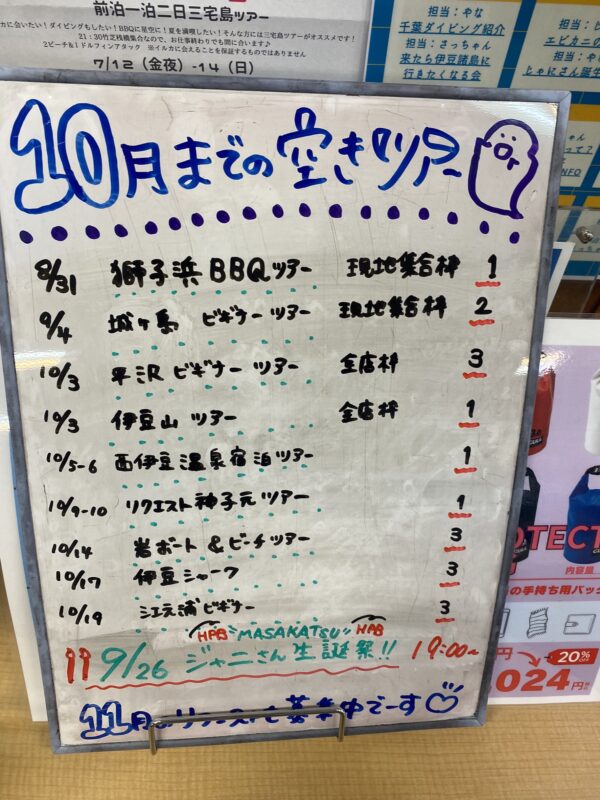 前泊一泊二日三宅島ツアー
21：30竹芝桟橋集合なので、お仕事終わりでも間に合います♪
2ビーチ&1ドルフィンアタック ※イルカに会えることを保証するものではありません
7/12（金夜）-14（日）
担当：やな
千葉ダイビング紹介
担当：さっちゃん
来たら伊豆諸島に
行きたくなる会
エビカニの
じゃにさん誕生
10月までの空きツアー
8/31 獅子浜BBQツアー 現地集合枠 1
9/4 城ヶ島 ビギナーツアー 現地集合枠 2
10/3 平沢ビギナーツアー 全店枠 3
10/3 伊豆山ツアー 全店枠 1
10/5-6 西伊豆温泉宿泊ツアー 1
10/9-10 リクエスト神子元ツアー 1
10/14 岩ボート&ビーチツアー 3
10/17 伊豆シャーク 3
10/19 江之浦ビギナー 3
HPB "MASAKATSU" HPB
9/26 ジャニさん生誕祭!! 19:00~
11月のリクエストも募集中でーす
OTECT
内容量
の手持ち用バッ
円
20%
024円